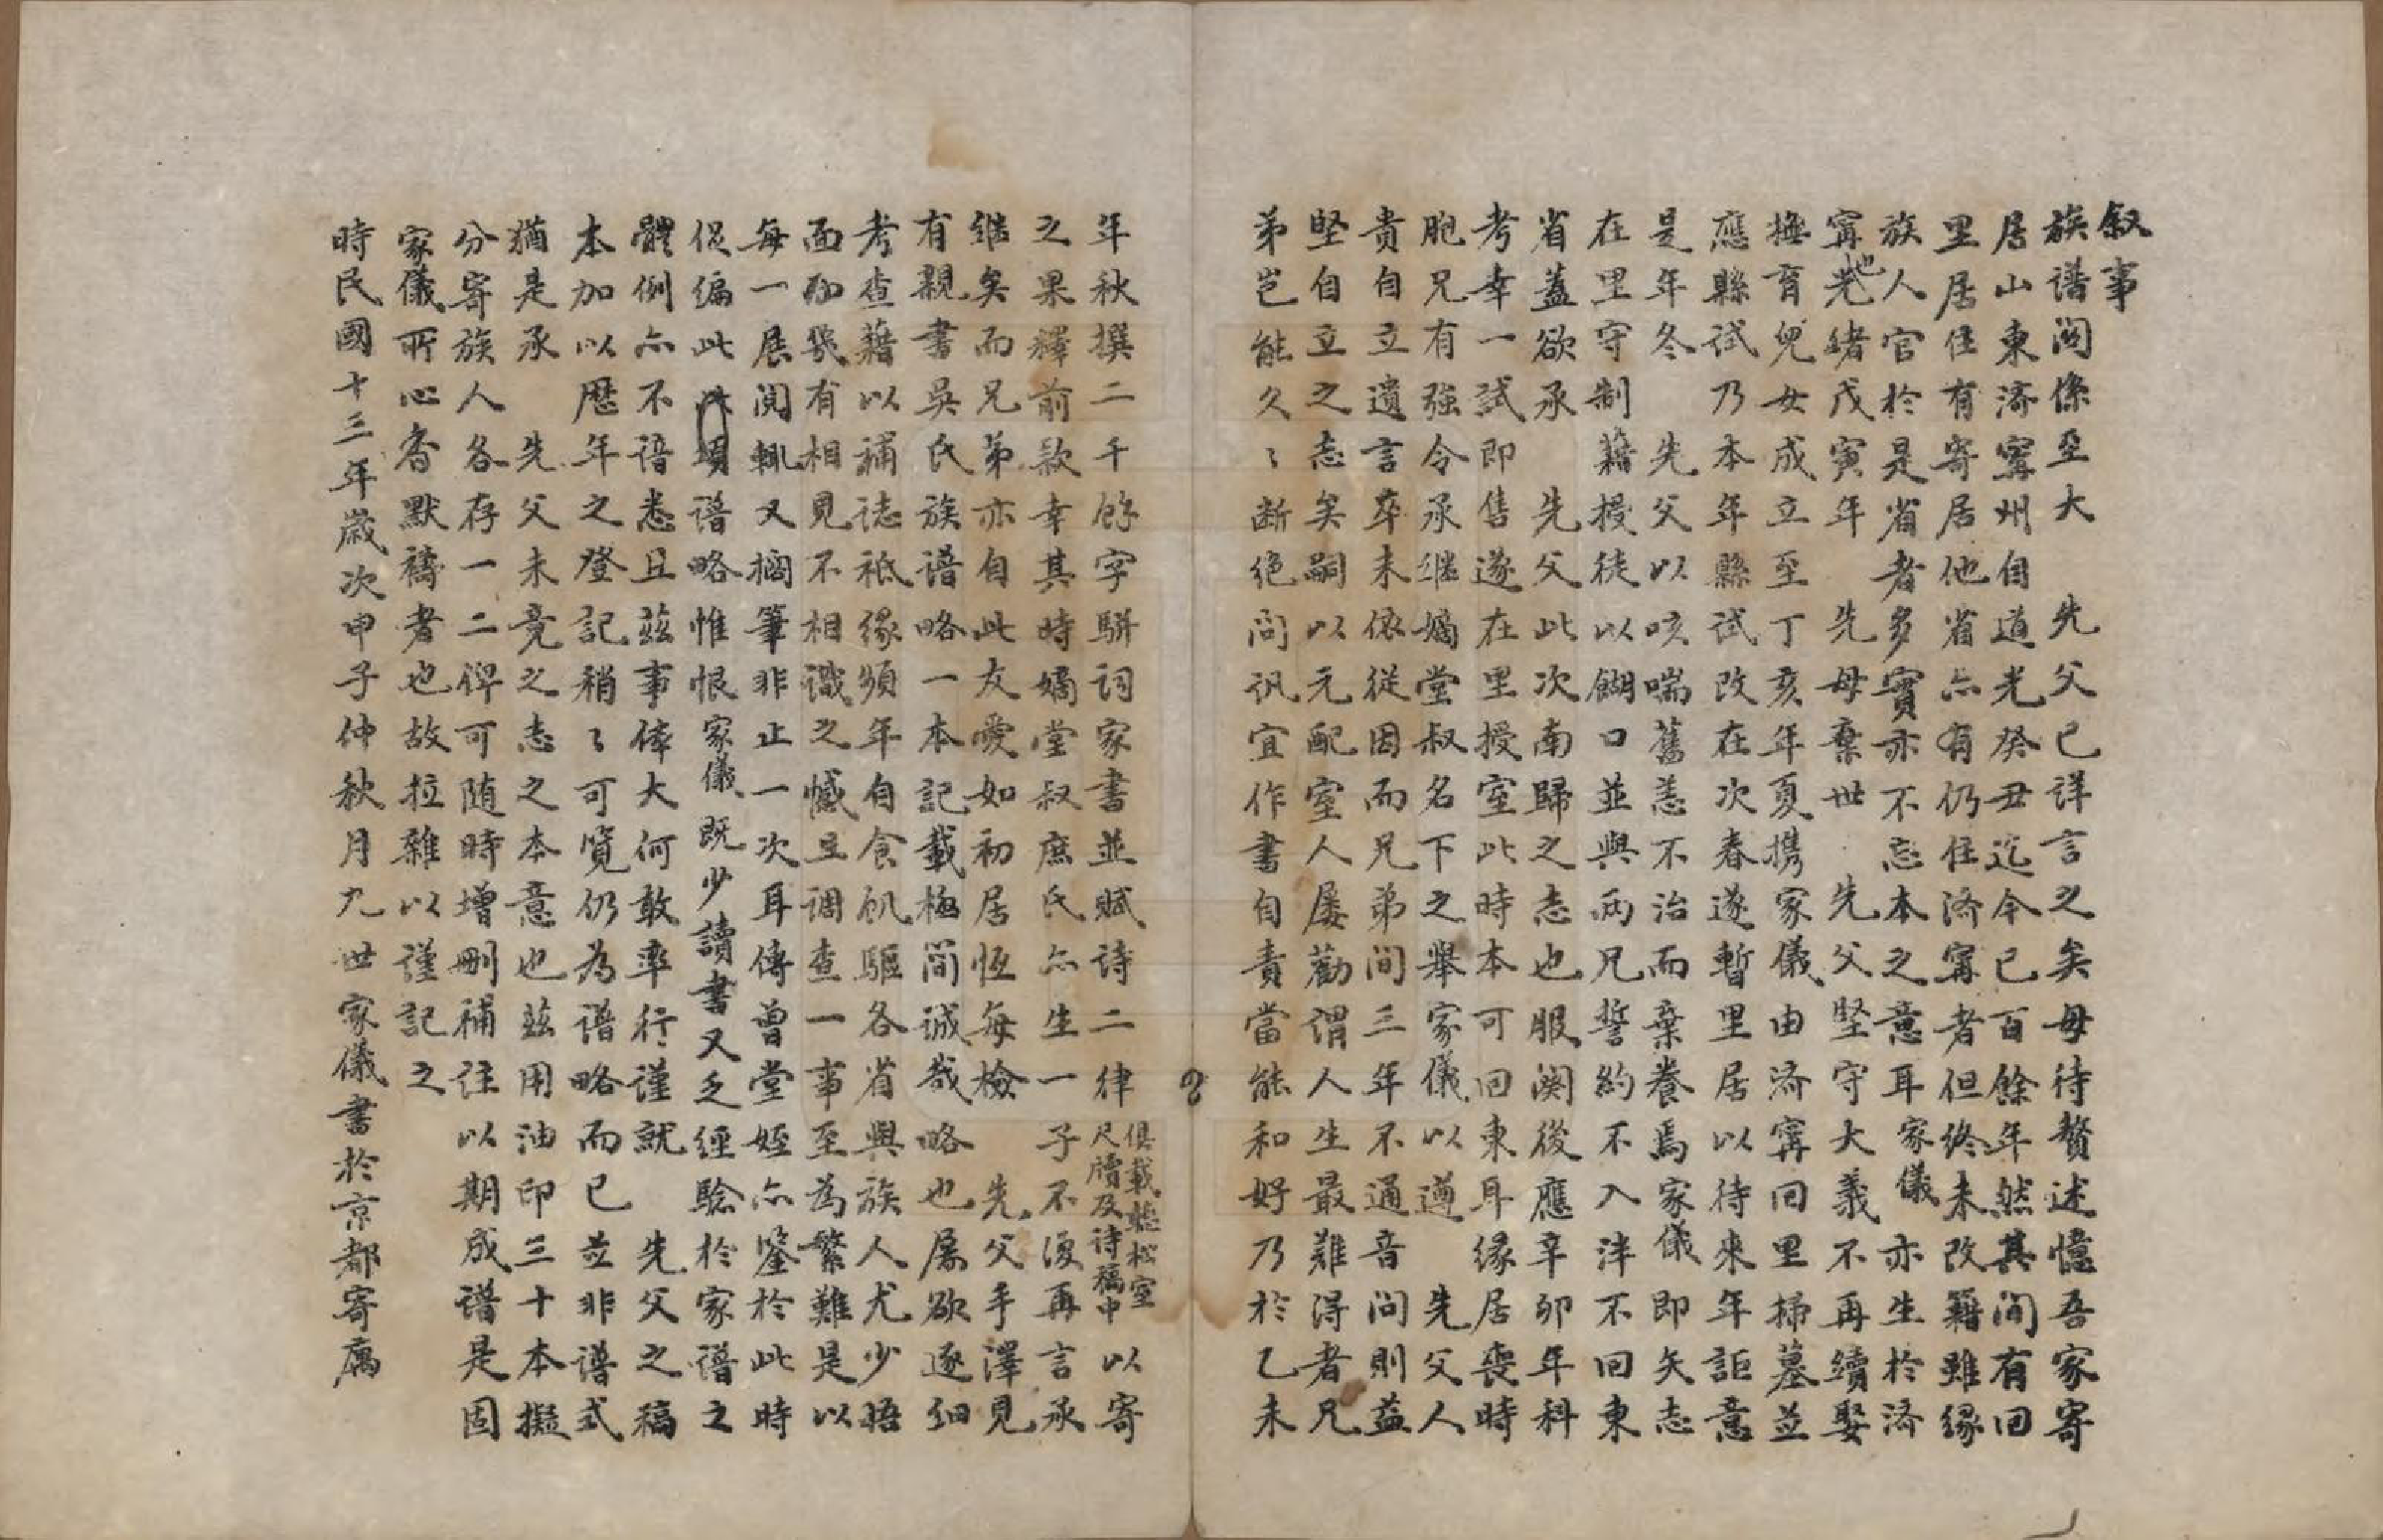 叙事
族譜関係至大　先父已詳言之矣毋待贅述憶吾家寄
居山東済寗州自道光癸丑迄今已百餘年然其间有回
里居住有寄居他省亦有仍住済寗者但終未改籍雖缘
族人官於是省者多實亦不忘本之意耳家儀亦生於済
寗也光緒戊寅年　先母棄世　先父堅守大義不再續娶
撫育兒女成立至丁亥年夏携家儀由済寗回里掃墓並
應縣試乃本年縣試改在次春遂暫里居以待來年詎意
是年冬　先父以咳喘舊恙不治而棄養焉家儀即矢志
在里守制藉授徒以餬口並與両兄誓約不入泮不回東
省蓋欲承　先父此次南歸之志也服闋後應辛卯年科
考幸一試即售遂在里授室此時本可回東耳缘居喪時
胞兄有強令承继嫡堂叔名下之舉家儀以遵　先父人
貴自立遺言卒未依従因而兄弟间三年不通音问則益
堅自立之志矣嗣以元配室人屡勸謂人生最難得者兄
弟岂能久〻断绝问讯宜作書自責當能和好乃於乙未
年秋撰二千餘字駢词家書並賦诗二律俱載聴松室尺牘及诗稿中以寄
之果釋前款幸其時嫡堂叔庶氏亦生一子不须再言承
继矣而兄弟亦自此友愛如初居恆每檢　先父手澤見
有親書吳氏族譜略一本記載極简诚哉略也屡欲逐细
考查藉以補誌祗缘頻年自食飢驅各省與族人尤少晤
面而幾有相見不相識之憾且调查一事至為繁難是以
每一展阅輒又搁筆非止一次耳傳曾堂姪亦鑒於此時
促編此項譜略惟恨家儀既少讀書又乏經驗於家譜之
體例亦不谙悉且茲事体大何敢率行谨就　先父之稿
本加以歷年之登記稍〻可覽仍為谱略而已並非譜式
猶是承　先父未竟之志之本意也茲用油印三十本擬
分寄族人各存一二俾可随時增删補注以期成谱是固
家儀所心香默禱者也故拉雜以谨記之
時民國十三年歲次申子仲秋月九世家儀書於京都寄廡